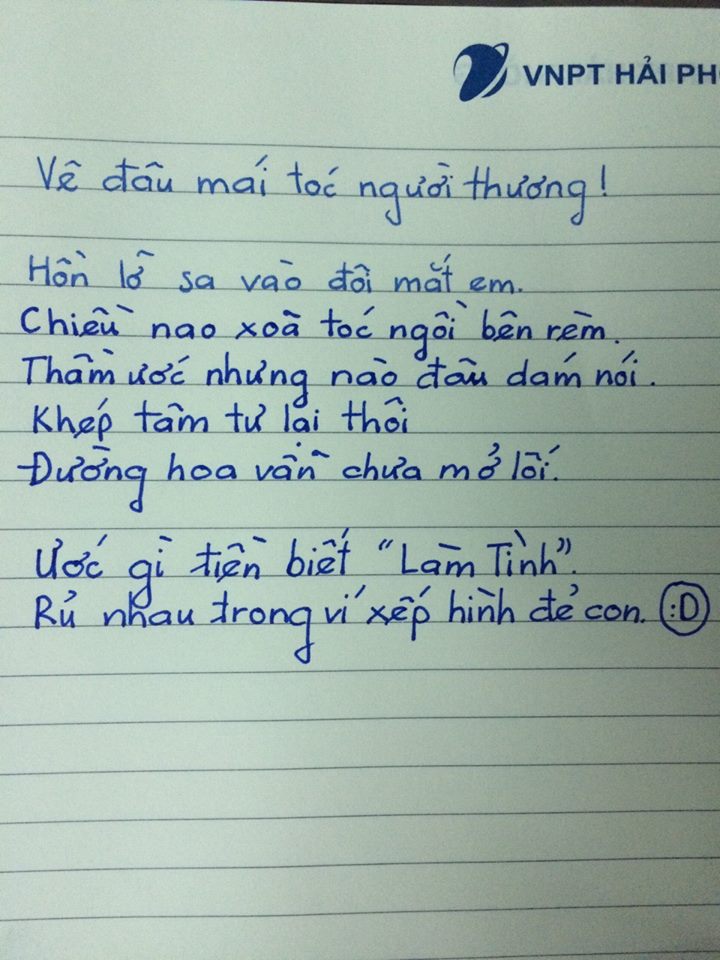 VNPT HẢI PH
Về đâu mái tóc người thương!
Hồn lỡ sa vào đôi mắt em.
Chiều nao xoã tóc ngồi bên rèm.
Thầm ước nhưng nào đâu dám nói.
Khép tâm tư lại thôi
Đường hoa vẫn chưa mở lối.
Ước gì tiền biết "Làm Tình".
Rủ nhau trong ví xếp hình đẻ con. :D